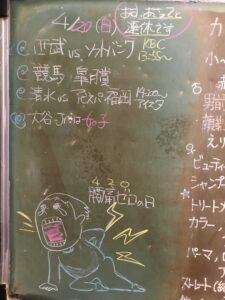 4/20(日)
あす、あさって
連休です
西武 vs ソフトバンク KBC 13:55〜
競馬 皐月賞
清水 vs アビスパ福岡 14:00〜 アイスタ
大谷
女の子
4 2 0
腰痛ゼロの日
カ
小
えり
ビューティ
シャンプ
トリートメ
カラー,
パーマ,
ストレート